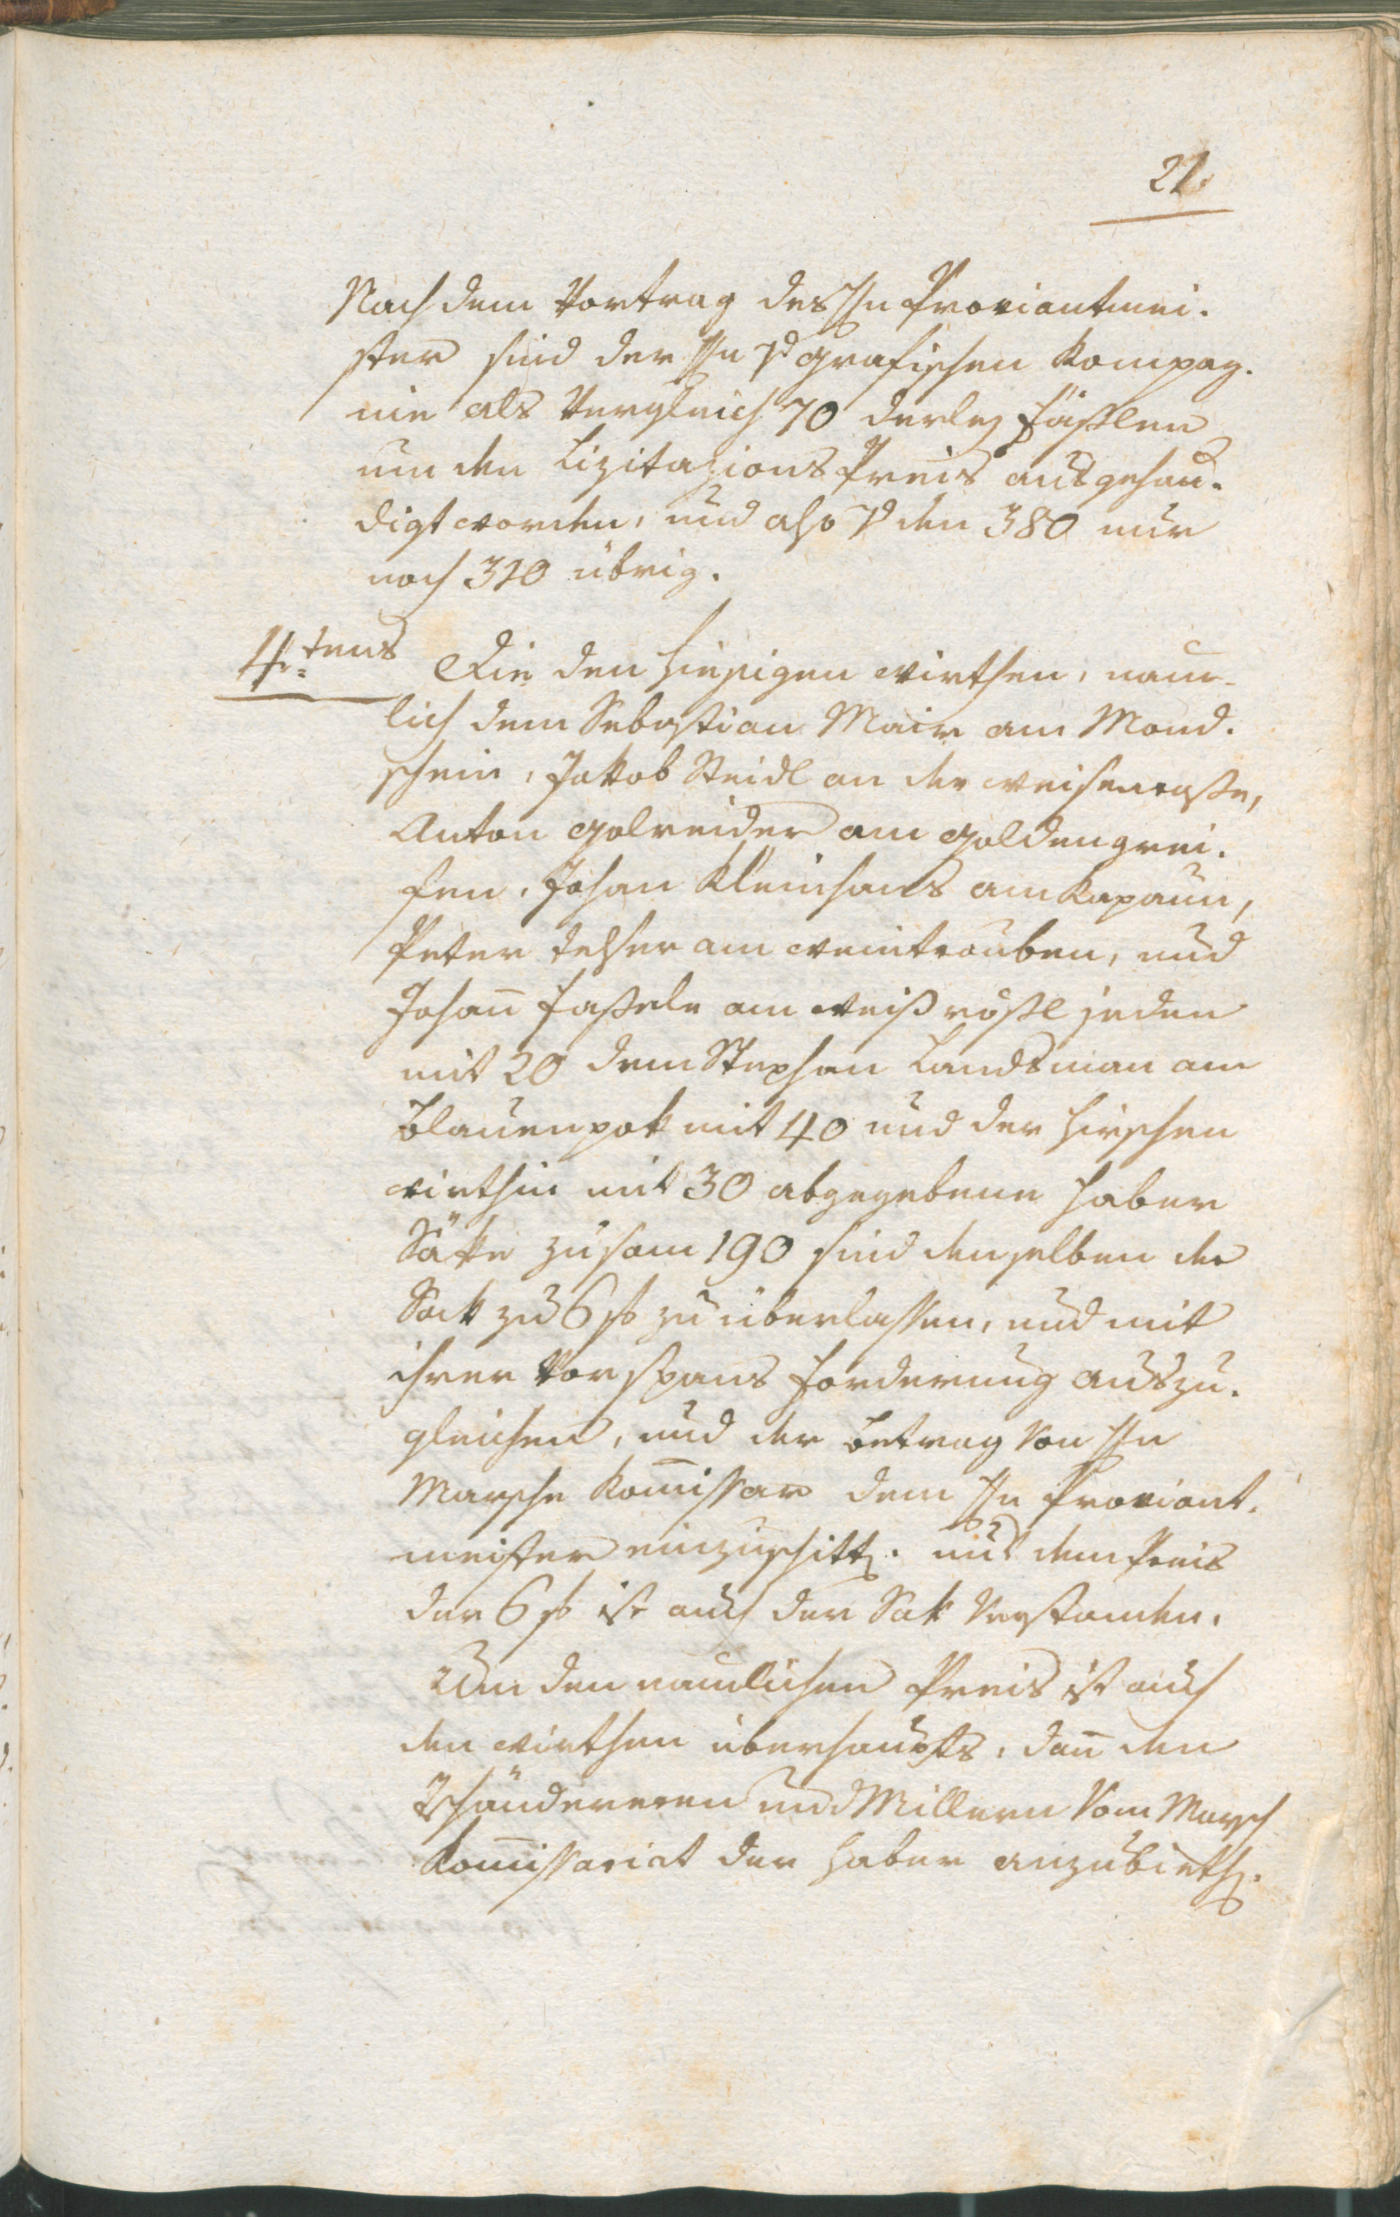 21.
Nach dem Vortrag des Hn Proviantmei.
ster sind der Hn grafischen Kompag.
nie als Vergleich 70 derley Fäßlen
um den Lizitazions Preis ausgehän.
digt worden, und also von den 380 nur
noch 310 übrig.
4tens Die den hiesigen Wirthen, näm-
lich dem Sebastian Mair am Mond.
schein, Jakob Steidl an der Weisentraße,
Anton Golreider am Goldengrei.
fen, Johan Kleinhans am Kapaun,
Peter Telser am Weintrauben, und
Johan̄ Faßele am Weiß rößl jeden
mit 20 dem Stephan Landsman am
Blauenpok mit 40 und der Hirschen
wirthin mit 30 abgegebene Haber
Säke zusam 190 sind denselben der
Sack zu 6 f zu überlassen, und mit
ihrer Vorspans Forderung auszu.
gleichen, und der Betrag von Hn
Marsche Kom̄issar dem Hn Proviant.
meister einzuschikk. mit dem Preis
der 6 f ist auch der Sak verstanden.
Um den nämlichen Preis ist auch
den Wirthen überhaupts, dan̄ den
und Millern vom Marsch
Kom̄issariat der Haber anzubieth.